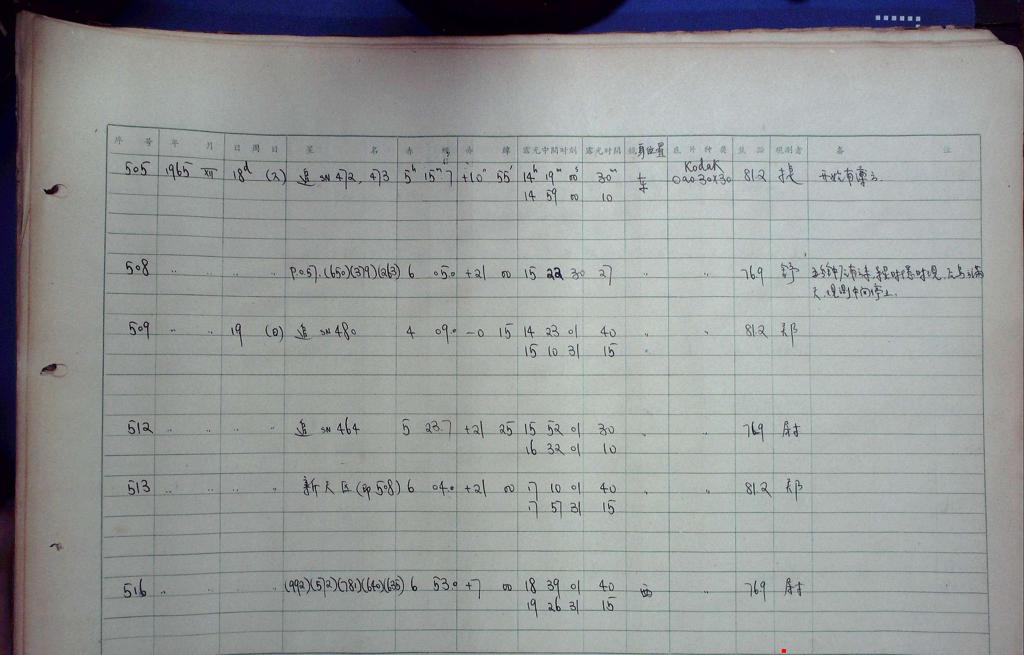 序 号 年 月 日 周 日 星 名 赤 经 赤 纬 露光中间时刻 露光时间 镜身位置 底片种类 焦距 观测者 备 注
505 1965 XII 18d (六) 追 SN 472, 473 5h 15m 7 +10° 55′ 14h 19m 00s 30m 东 Kodak 0a0 30x30 81.2
14 59 00 10
508 〃 〃 〃 〃 P.O.57. (650)(379)(263) 6 05.0 +21 00 15 22 30 27 〃 〃 769 舒
天, 观测中间停止.
509 〃 〃 19 (日) 追 SN 480 4 09.0 -0 15 14 23 01 40 〃 〃 81.2 郑
15 10 31 15
512 〃 〃 〃 〃 追 SN 464 5 23.7 +21 25 15 52 01 30 〃 〃 769
16 32 01 10
513 〃 〃 〃 〃 新天区(即508) 6 04.0 +21 00 17 10 01 40 〃 〃 81.2 郑
17 57 31 15
516 〃 〃 (992)(572)(781)(640)(635) 6 53.0 +7 00 18 39 01 40 西 〃 769
19 26 31 15